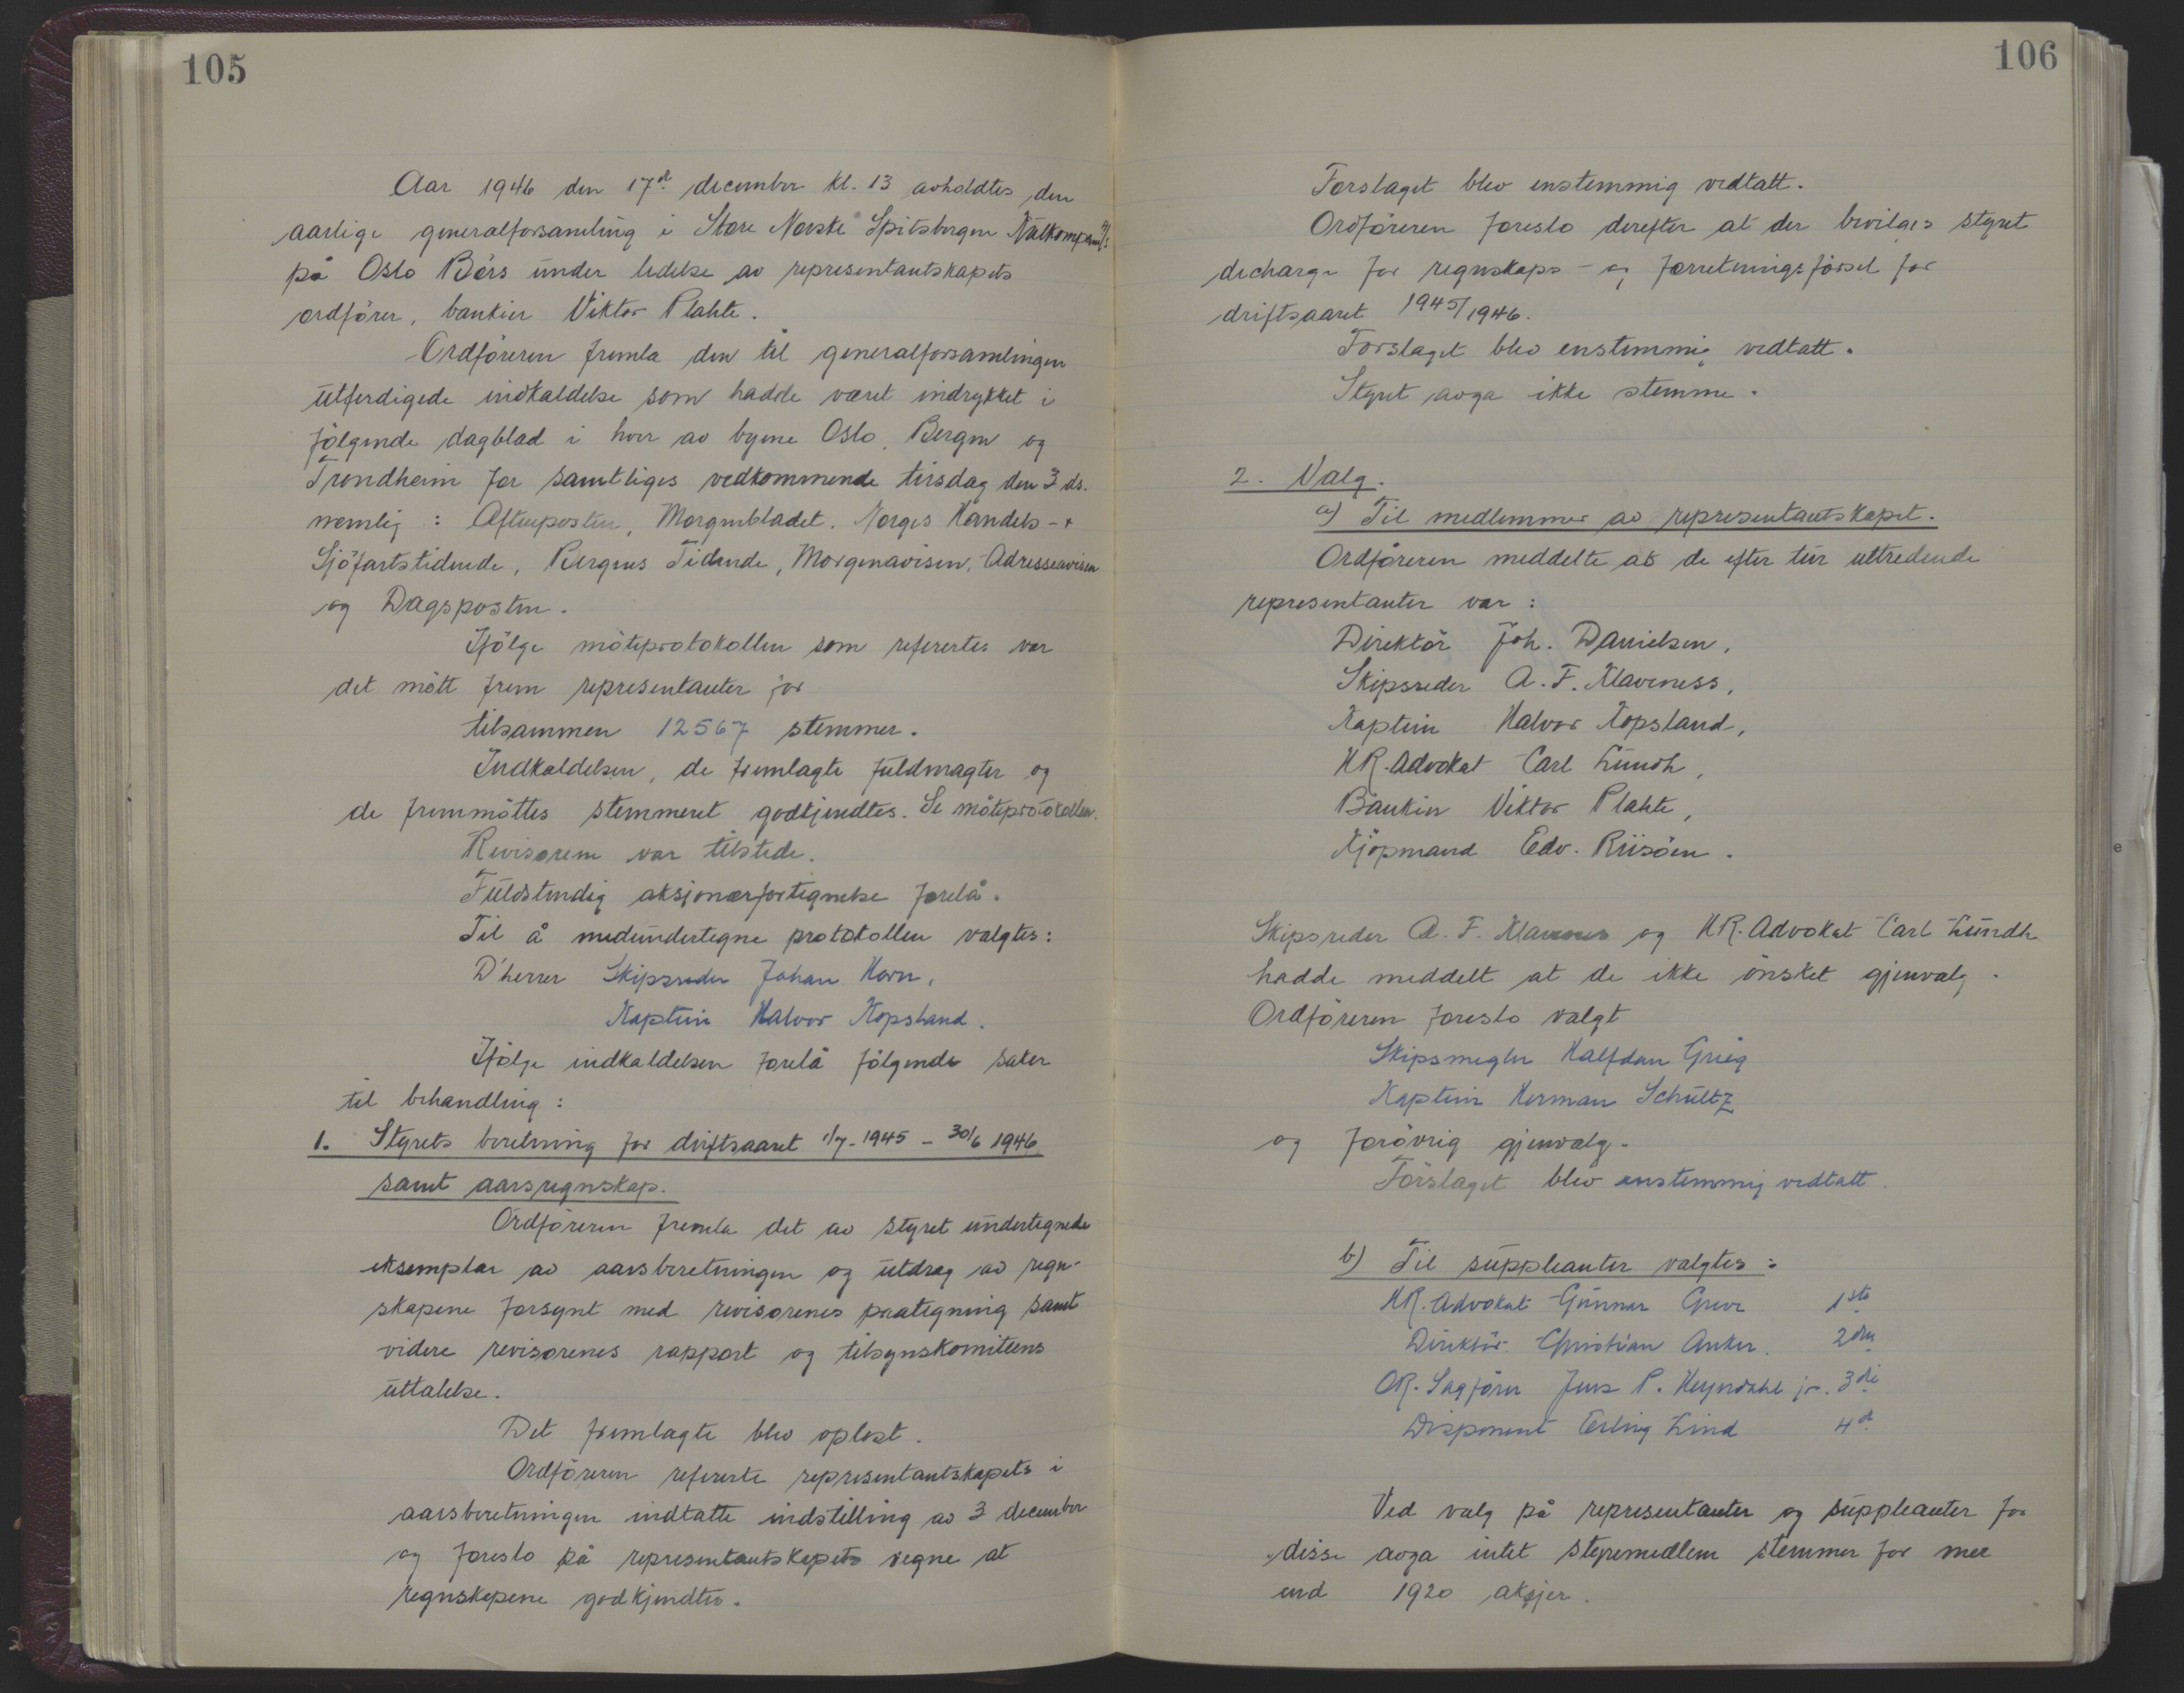 105
Aar 1946 den 17d december kl. 13 avholdtes den
aarlige generalforsamling i Store Norske Spitsbergen Kulkompani A/S
på Oslo Börs under ledelse av representantskapets
ordförer, bankier Viktor Plahte.
Ordföreren fremla den til generalforsamlingen
utferdigede indkaldelse som hadde været indrykket i
fölgende dagblad i hver av byene Oslo, Bergen og
Trondheim for samtliges vedkommende tirsdag den 3 ds.
nemlig : Aftenposten, Morgenbladet. Norges Handels- +
Sjöfartstidende, Bergens Tidende, Morgenavisen, Adresseavisen
og Dagsposten.
Ifölge möteprotokollen som refertes var
det mött frem representanter for
tilsammen 12567 stemmer.
Indkaldelsen, de fremlagte fuldmagter og
de fremmöttes stemmeret godkjendtes. Se möteprotokollen.
Revisorene var tilstede.
Fuldstendig aksjonærfortegnelse forelå.
Til å medundertegne protokollen valgtes:
D'herrer Skipsreder Johan Horn,
Kaptein Halvor Kopsland.
Ifölge indkaldelsen forelå fölgende saker
til behandling :
1. Styrets beretning for driftsaaret 1/7-1945 - 30/6 1946
samt aarsregnskap.
Ordföreren fremla det av styret undertegnede
eksemplar av aarsberetningen og utdrag av regn-
skapene forsynt med revisorenes paategning samt
videre revisorenes rapport og tilsynskomiteens
uttalelse.
Det fremlagte blev oplest.
Ordföreren refererte representantskapets i
aarsberetningen indtatte indstilling av 3 december
og foreslo på representantskapets vegne at
regnskapene godkjendtes.
106
Forslaget blev enstemmig vedtatt.
Ordföreren foreslo derefter at der bevilges styret
decharge for regnskaps - og forretningsförsel for
driftsaaret 1945/1946.
Forslaget blev enstemmig vedtatt.
Styret avga ikke stemme.
2. Valg.
a) Til medlemmer av representantskapet.
Ordföreren meddelte at de efter tur uttredende
representanter var :
Direktör Joh. Danielsen,
Skipsreder A. F. Klaveness,
Kaptein Halvor Kopsland,
HR. Advokat Carl Lundh,
Bankier Viktor Plahte,
Kjöpmand Edv. Riisöen.
Skipsreder A. F. Klaveness og HR. Advokat Carl Lundh
hadde meddelt at de ikke önsket gjenvalg.
Ordföreren foreslo valgt
Skipsmegler Halfdan Grieg
Kaptein Herman Schultz
og forövrig gjenvalg.
Forslaget blev enstemmig vedtatt.
b) Til suppleanter valgtes :
HR. Advokat Gunnar Greve 1ste
Direktör Christian Anker. 2den
OR. Sagförer Jens P. Heyerdahl jr. 3die
Disponent Erling Lind 4d
Ved valg på representanter og suppleanter for
disse avga intet styremedlem stemmer for mer
end 1920 aksjer.